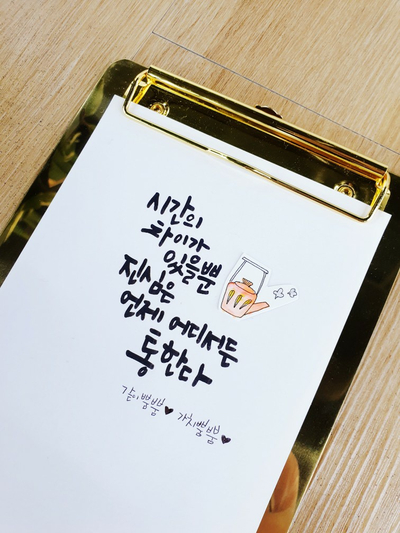 시간의
차이가
있을뿐
진심은
언제 어디서든
통한다
같이뿜뿜♥ 가치뿜뿜♥